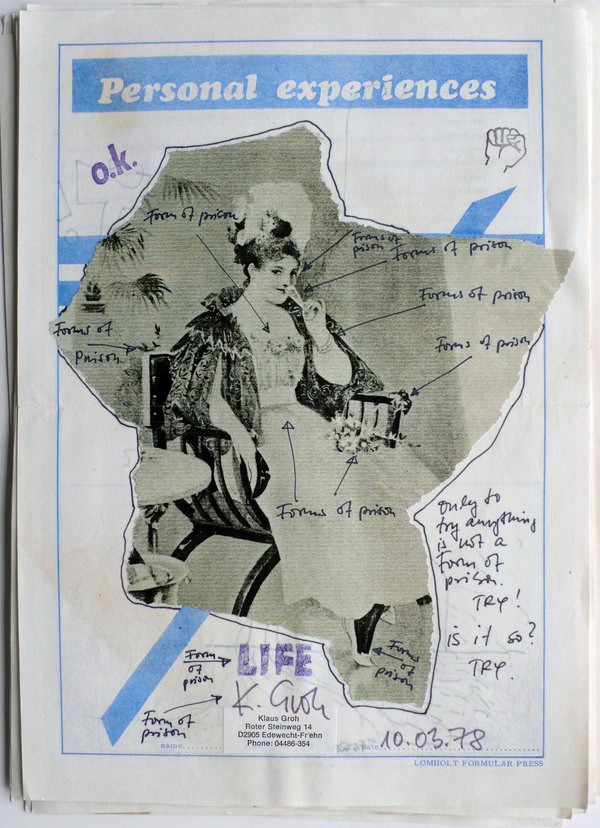 Personal experiences
o.k.
Form of prison
Forms of
prison
Forms of prison
Forms of prison
Forms of
prison
Forms of prison
Forms of prison
only to
try anything
is not a
Form of
prison.
TRY!
is it so?
TRY.
Form
of
prison
LIFE
Forms
of
prison
Form of
prison
K. Groh
Klaus Groh
Roter Steinweg 14
D2905 Edewecht-Fr'ehn
Phone: 04486-354
name:
date
10.03.78
LOMHOLT FORMULAR PRESS